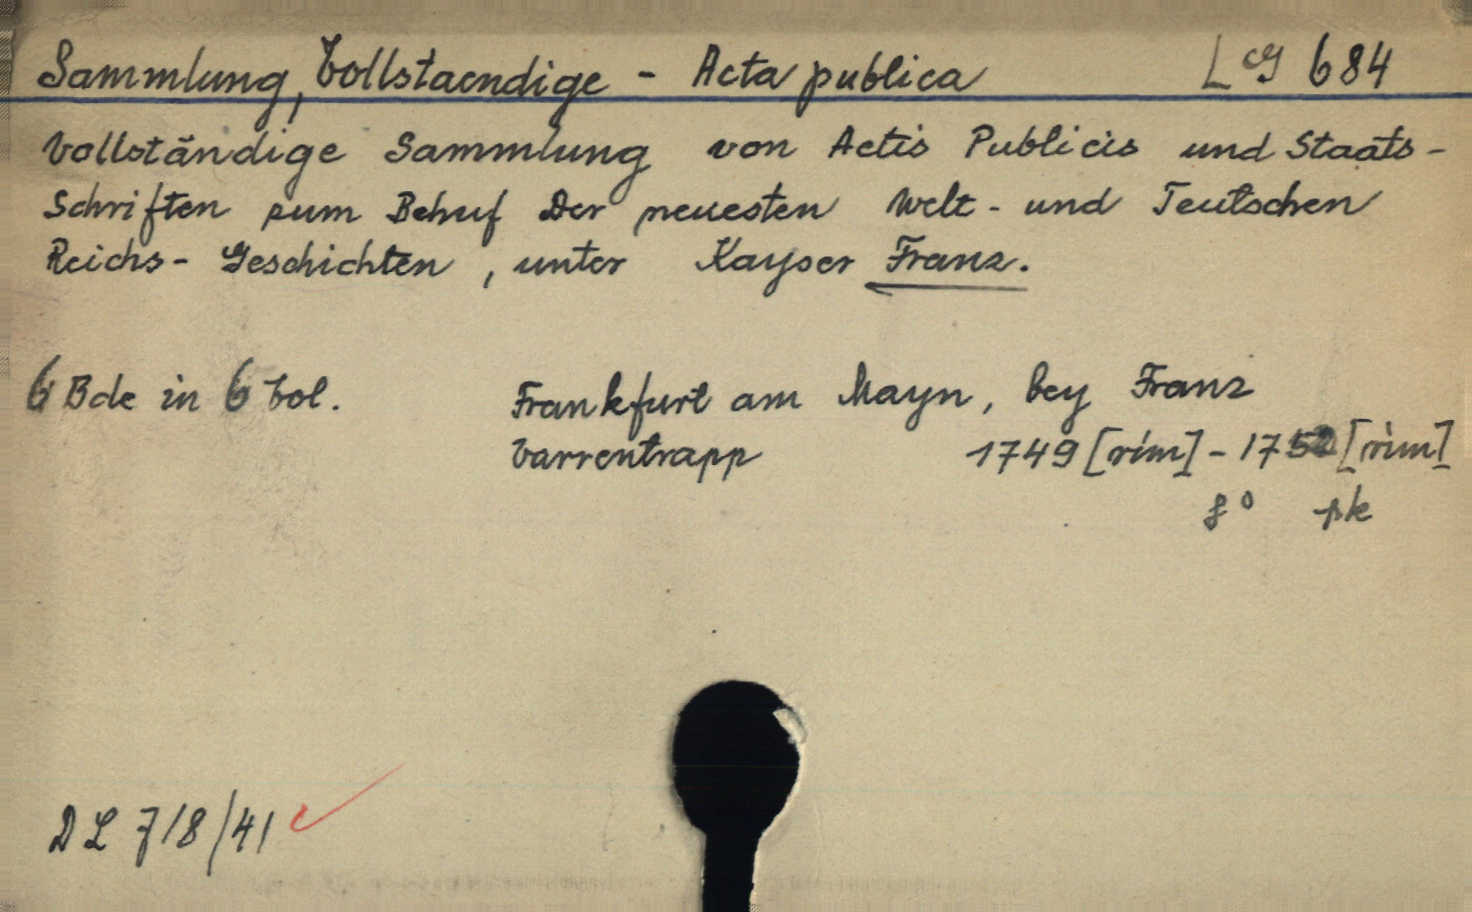 Sammlung, Vollstaendige - Acta publica L eg 684
Vollständige Sammlung von Actis Publicis und Staats-
Schriften zum Behuf Der neuesten Welt- und Teutschen
Reichs- Geschichten, unter Kayser Franz.
6 Bde in 6 Vol. Frankfurt am Mayn, bey Franz
Varrentrapp 1749 [röm] - 1752 [röm]
f° pk
D L 7/8/41